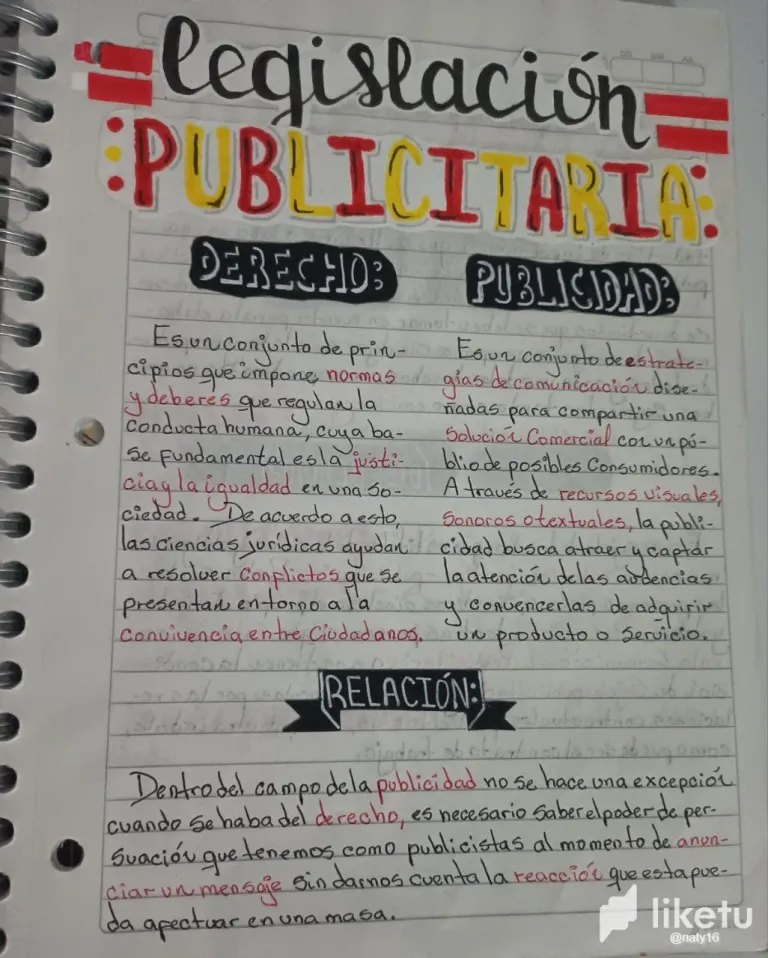 legislación
PUBLICITARIA
DERECHO:
Es un conjunto de prin-
cipios que impone normas
y deberes que regulan la
conducta humana, cuya ba-
se fundamental es la justi-
cia y la igualdad en una so-
ciedad. De acuerdo a esto,
las ciencias jurídicas ayudan
a resolver conflictos que se
presentan entorno a la
convivencia entre Ciudadanos.
PUBLICIDAD:
Es un conjunto de estrate-
gias de comunicación dise-
ñadas para compartir una
Solución Comercial con un pú-
blio de posibles Consumidores.
A través de recursos visuales,
Sonoros o textuales, la publi-
cidad busca atraer y captar
la atención de las audencias
y convencerlas de adquirir
un producto o servicio.
RELACIÓN:
Dentro del campo de la publicidad no se hace una excepción
cuando se haba del derecho, es necesario saber el poder de per-
suación que tenemos como publicistas al momento de anun-
ciar un mensaje sin darnos cuenta la reacción que esta pue-
da afectuar en una masa.
liketu
@naty16